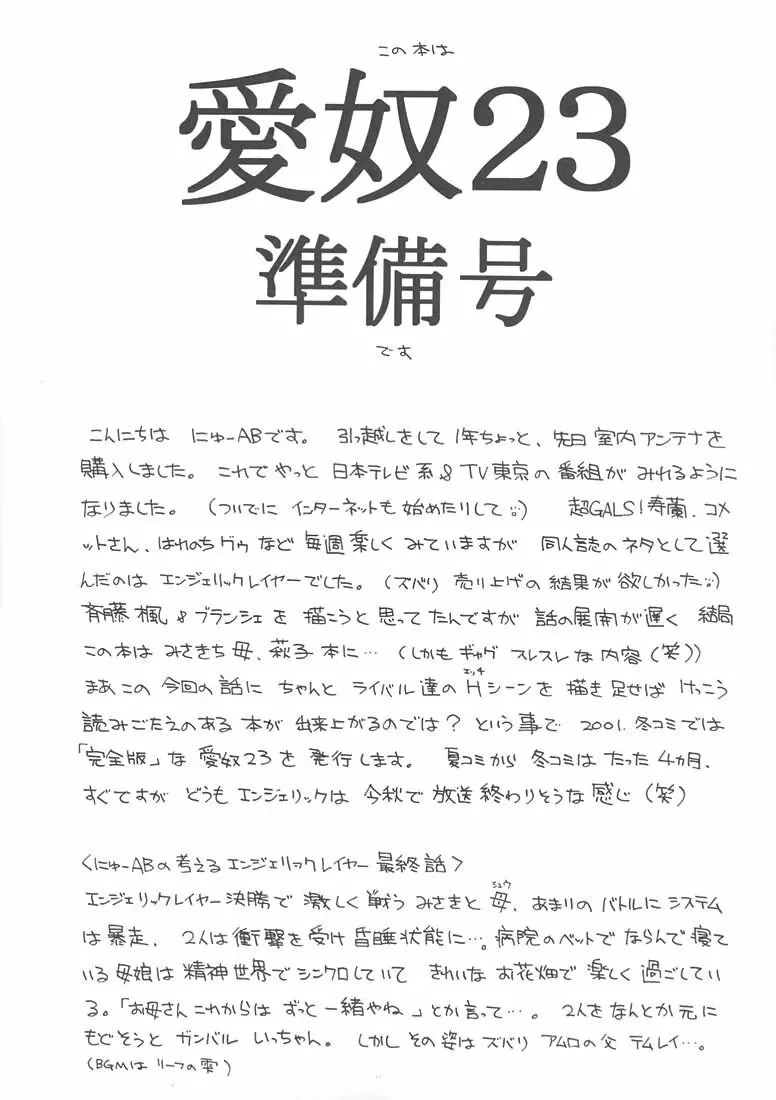 この本は
愛奴23
準備号
です
こんにちは にゅーABです。 引っ越しをして 1年ちょっと、先日 室内アンテナを
購入しました。 これでやっと 日本テレビ系&TV東京の番組が みれるように
なりました。(ついでに インターネットも 始めたりして) 超GALS!寿蘭、コメ
ットさん、はれのちグゥ など 毎週楽しく みていますが 同人誌のネタとして選
んだのは エンジェリックレイヤーでした。(ズバリ 売り上げの結果が欲しかった)
斉藤楓&ブランシェを 描こうと思ってたんですが 話の展開が遅く 結局
この本は みさきち母、萩子本に… (しかもギャグ スレスレな内容(笑))
まあこの 今回の話に ちゃんと ライバル達の Hエッチシーンを 描き足せば けっこう
読みごたえのある 本が 出来上がるのでは? という事で 2001.冬コミでは
「完全版」な 愛奴23を 発行します。 夏コミから 冬コミは たった 4ヵ月、
すぐですが どうも エンジェリックは 今秋で 放送終わりそうな 感じ(笑)
〈にゅーABの考える エンジェリックレイヤー 最終話〉
エンジェリックレイヤー決勝で 激しく戦う みさきと 母シュウ、あまりの バトルに システム
は暴走、 2人は衝撃を受け 昏睡状態に…。病院のベットで ならんで寝て
いる母娘は 精神世界で シンクロしていて きれいな お花畑で 楽しく 過ごしてい
る。「お母さん これからは ずっと一緒やね」とか言って…。 2人をなんとか元に
もどそうと ガンバル いっちゃん。 しかし その姿は ズバリ アムロの父 テムレイ…。
(BGMは リーフの雫)